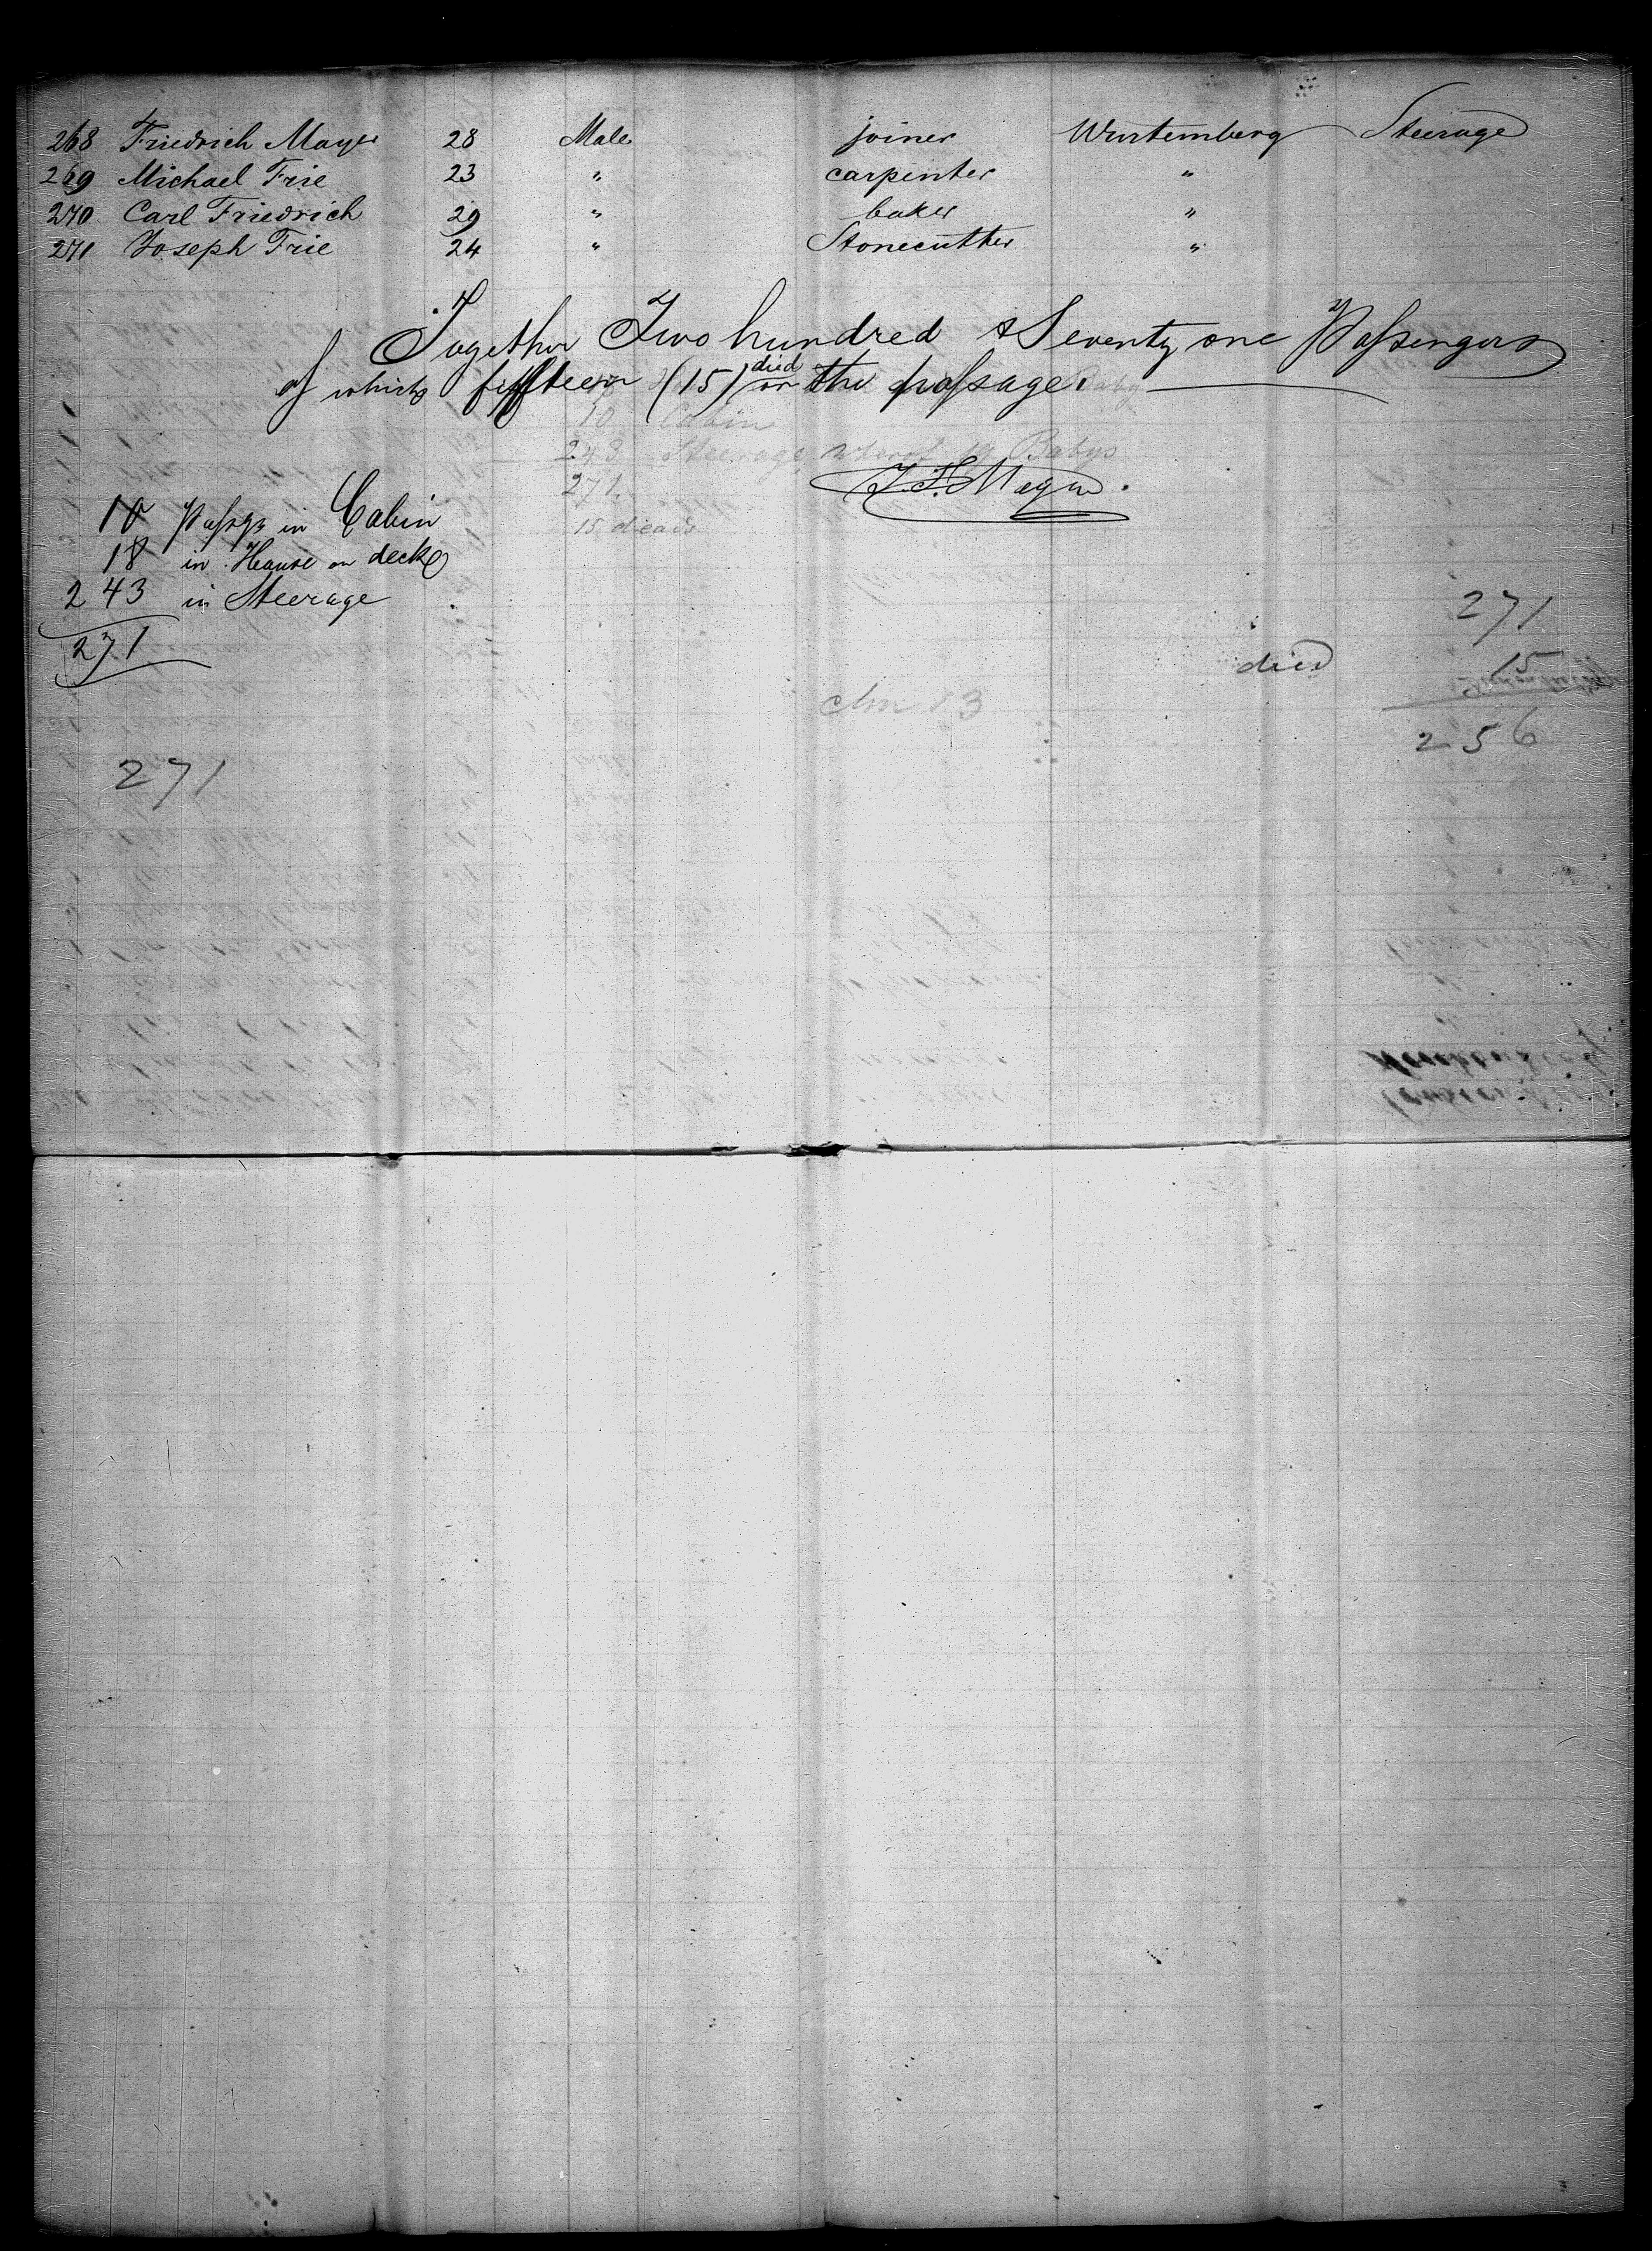 268 Friedrich Mayer 28 Male joiner Wurtemberg Steerage
269 Michael Frie 23 " carpenter "
270 Carl Friedrich 29 " baker "
271 Joseph Frie 24 " Stonecutter "
Together Two hundred & Seventy one Passengers
of which fiffteen (15) died on the passage.
Baby
10 Cabin
243 Steerage, Babys
271
15 dieads
10 Passgr in Cabin
18 in House on deck
243 in Steerage
271
271
died 15
256
271